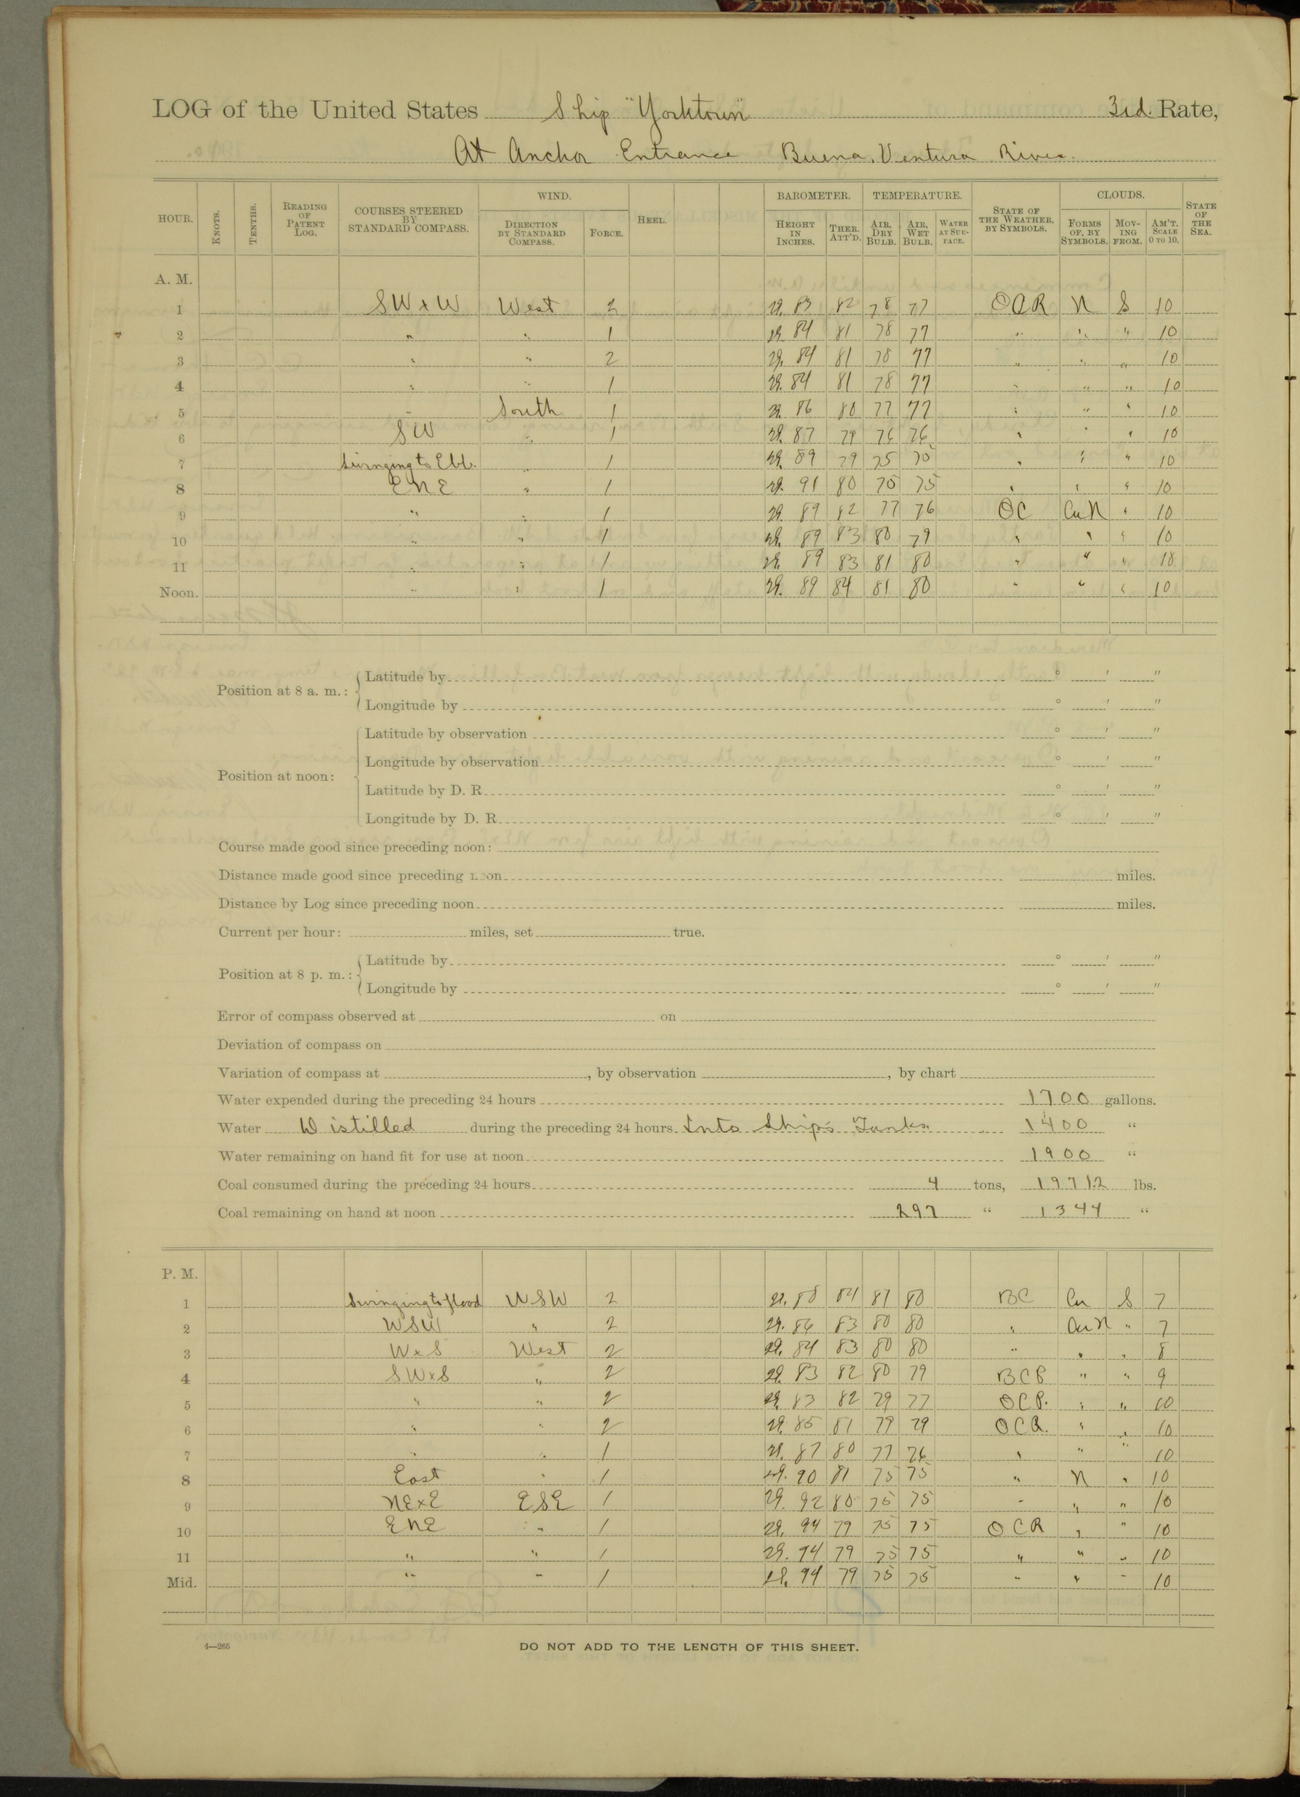 LOG of the United States Ship "Yorktown" 3rd. Rate,
At Anchor Entrance Buena Ventura River.
HOUR. KNOTS. TENTHS. READING OF PATENT LOG. COURSES STEERED BY STANDARD COMPASS. WIND. DIRECTION BY STANDARD COMPASS. FORCE. HEEL. BAROMETER. HEIGHT IN INCHES. THER. ATT'D. TEMPERATURE. AIR, DRY BULB. AIR, WET BULB. WATER AT SUR-FACE. STATE OF THE WEATHER, BY SYMBOLS. CLOUDS. FORMS OF, BY SYMBOLS. MOV-ING FROM. AM'T. SCALE 0 TO 10. STATE OF THE SEA.
A. M.
1 SWxW West 2 29. 83 82 78 77 OCR N S 10
2 " " 1 29. 84 81 78 77 " " " 10
3 " " 2 29. 84 81 78 77 " " " 10
4 " " 1 29. 84 81 78 77 " " " 10
5 " South 1 29. 86 80 77 77 " " " 10
6 SW " 1 29. 87 79 76 76 " " " 10
7 Swinging to Ebb. " 1 29. 89 79 75 75 " " " 10
8 ENE " 1 29. 91 80 75 75 " " " 10
9 " " 1 29. 89 82 77 76 OC CuN " 10
10 " " 1 29. 89 83 80 79 " " " 10
11 " " 1 29. 89 83 81 80 " " " 10
Noon. " " 1 29. 89 84 81 80 " " " 10
Position at 8 a. m.: Latitude by ° ' "
Longitude by ° ' "
Position at noon: Latitude by observation ° ' "
Longitude by observation ° ' "
Latitude by D. R. ° ' "
Longitude by D. R. ° ' "
Course made good since preceding noon:
Distance made good since preceding noon miles.
Distance by Log since preceding noon miles.
Current per hour: miles, set true.
Position at 8 p. m.: Latitude by ° ' "
Longitude by ° ' "
Error of compass observed at on
Deviation of compass on
Variation of compass at , by observation , by chart
Water expended during the preceding 24 hours 1700 gallons.
Water Distilled during the preceding 24 hours. Into Ship's Tanks 1400 "
Water remaining on hand fit for use at noon 1900 "
Coal consumed during the preceding 24 hours 4 tons, 1971.2 lbs.
Coal remaining on hand at noon 297 " 1344 "
P. M.
1 Swinging to flood WSW 2 29. 88 84 81 80 BC Cu S 7
2 WSW " 2 29. 86 83 80 80 " CuN " 7
3 WxS West 2 29. 84 83 80 80 " " " 8
4 SWxS " 2 29. 83 82 80 79 BCP " " 9
5 " " 2 29. 83 82 79 77 OCP. " " 10
6 " " 2 29. 85 81 79 79 OCR. " " 10
7 " " 1 29. 87 80 77 76 " " " 10
8 East " 1 29. 90 81 75 75 " N " 10
9 NExE ESE 1 29. 92 80 75 75 " " " 10
10 ENE " 1 29. 94 79 75 75 OCR " " 10
11 " " 1 29. 94 79 75 75 " " " 10
Mid. " " 1 29. 94 79 75 75 " " " 10
4—265 DO NOT ADD TO THE LENGTH OF THIS SHEET.